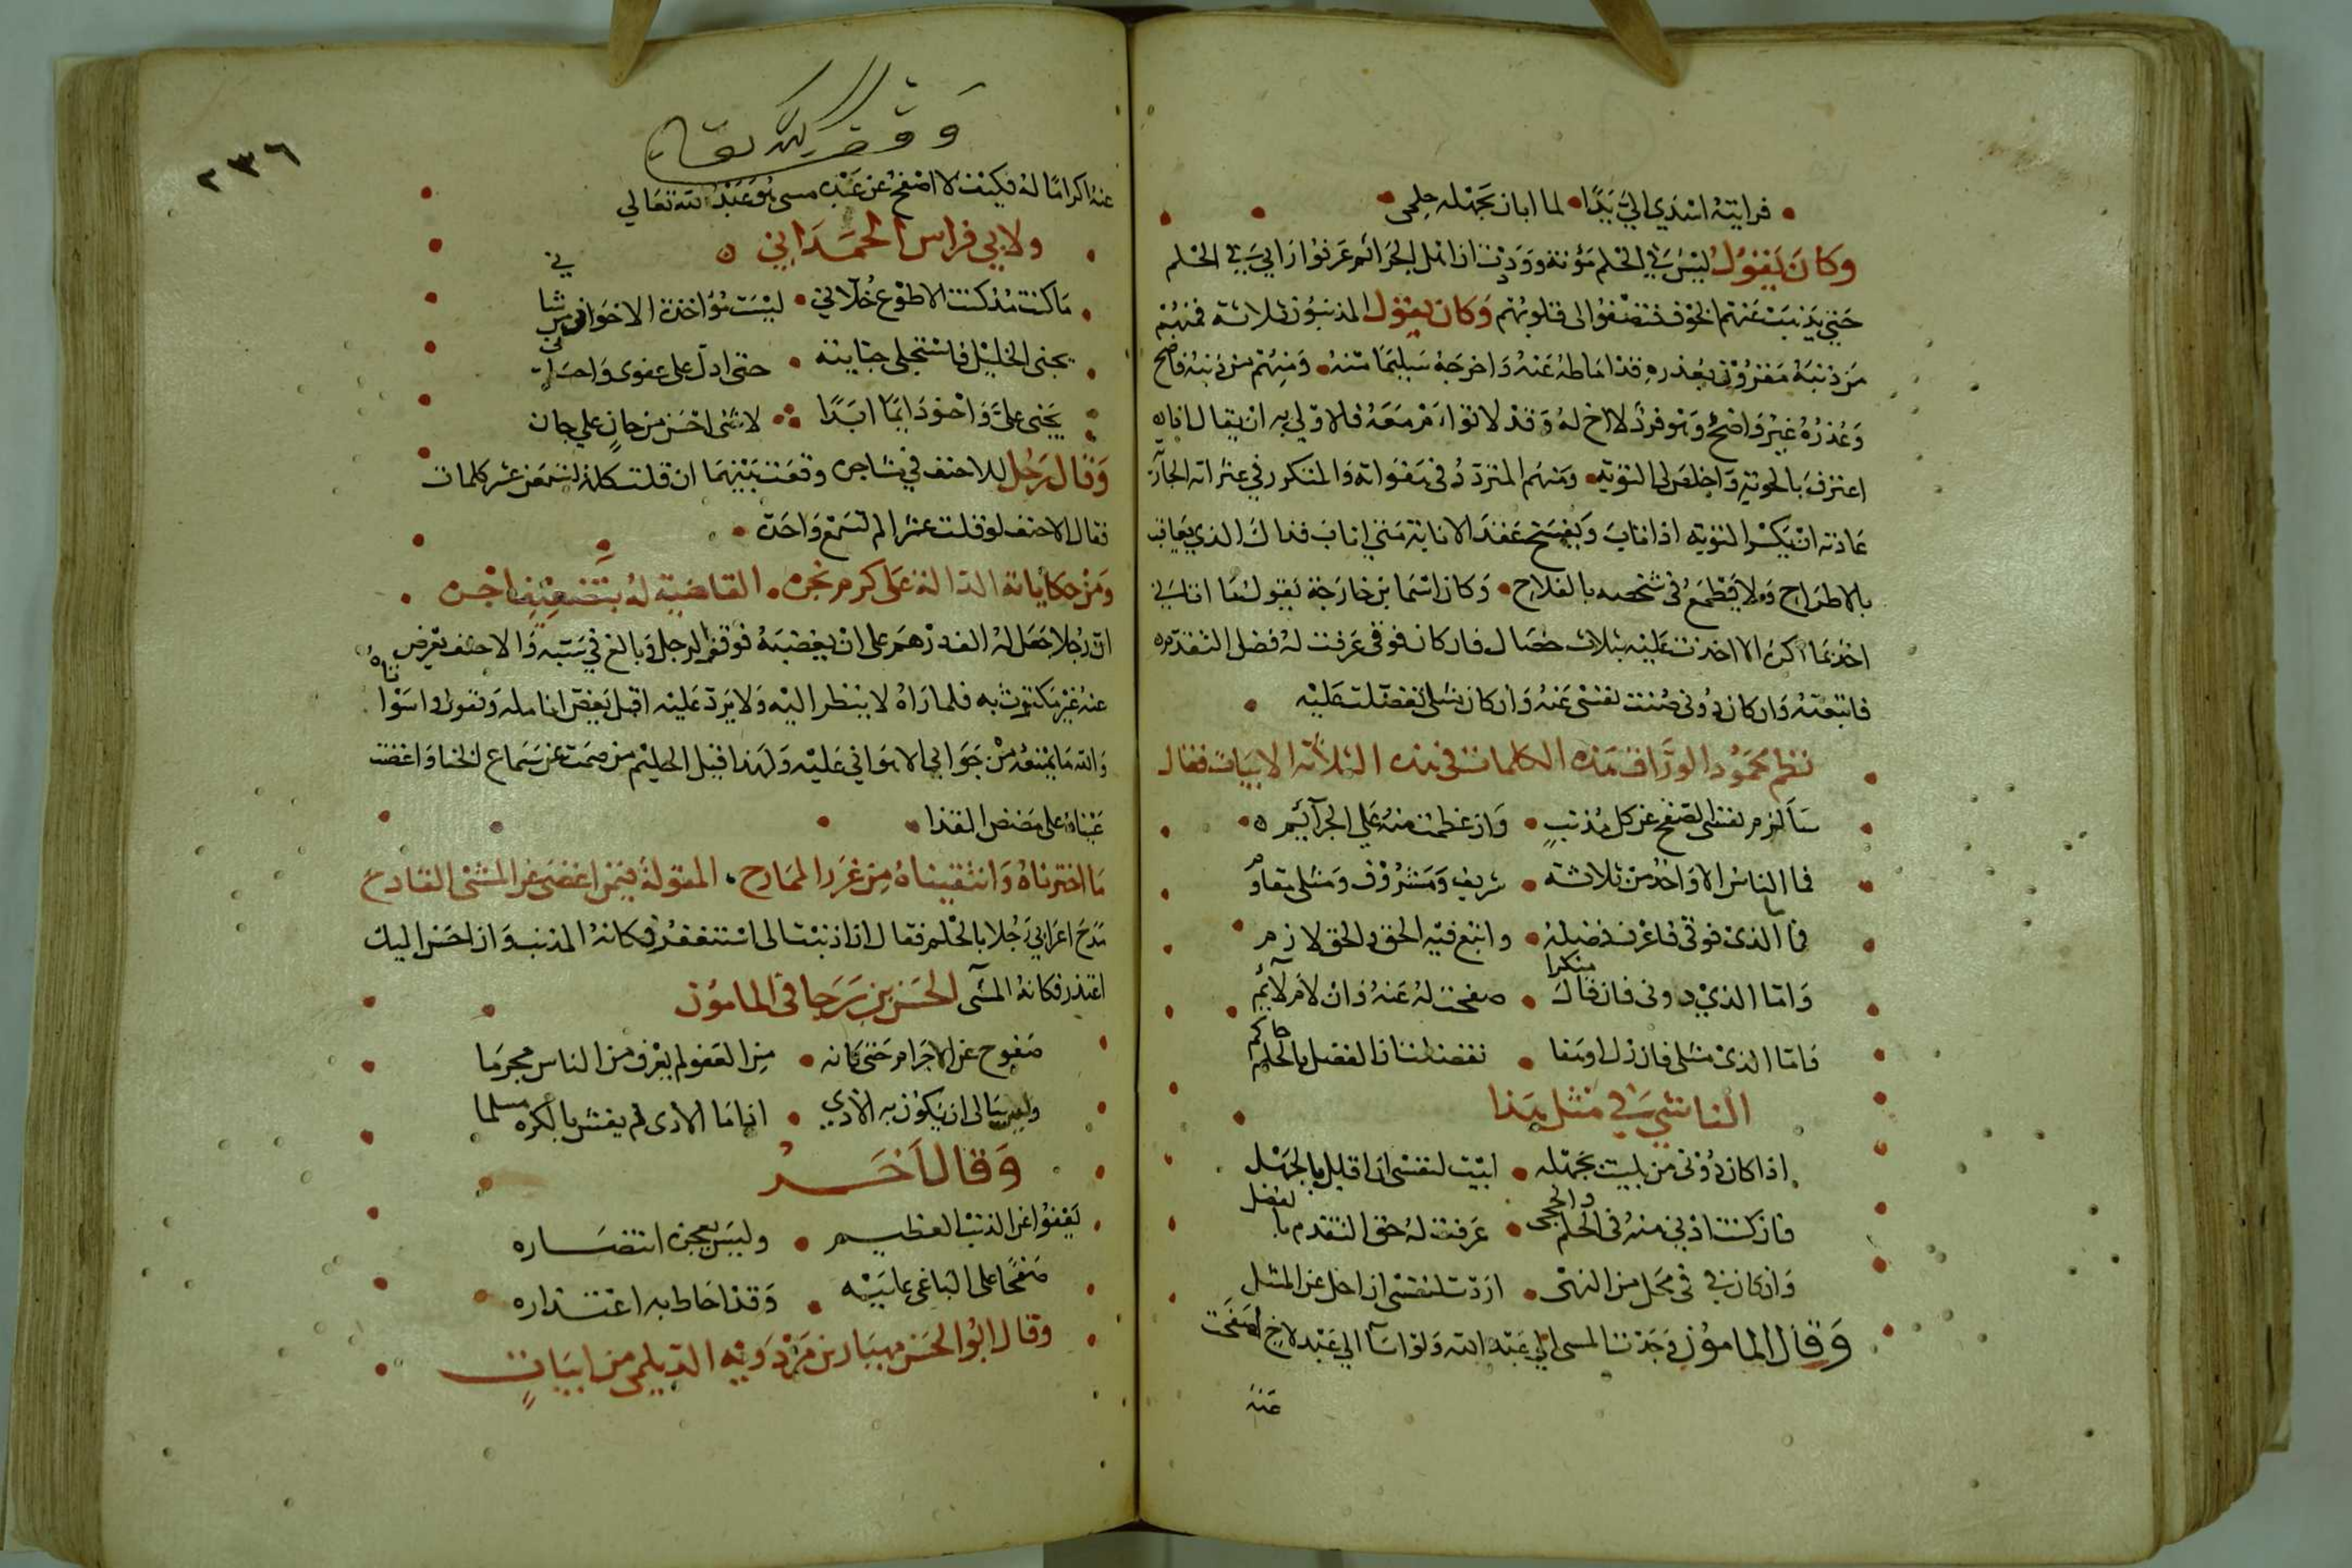 فرايته اسدي الي يدا لما ابان بجهله حلمى
وكان يقول ليس في الحلم مؤنة ووددت ان اهل الجرائم عرفوا رايي في الحلم
حتى يذهب عنهم الخوف فتصفوا الى قلوبهم وكان يقول المذنبون ثلاثة فمنهم
من ذنبه مقرون بعذره قد اماطه عنه واخرجه سليما منه ومنهم من ذنبه فاضح
وعذره غير واضح وهو فرد لا اخ له وقد لا توام معه فالاولى به ان يقال اناه
اعترف بالحوبة واخلص لى التوبة ومنهم المتردد فى هفواته والمتكور في عثراته
عادته ان يكسر التوبة اذا تاب ويفسخ عقد الانابة متى اناب فذاك الذي يعاقب
بالاطراح ولا يطمع في بالفلاح وكان اسما بن خارجة يقول ما اتاني
احد بما اكره الا اخذت عليه بثلاث خصال فان كان فوقى عرفت له فضل التقدم
فاتبعته وان كان دوني صنت نفسى عنه وان كان مثلى تفضلت عليه
نظم محمود الوراق هذه الكلمات في هذه الثلاثة الابيات فقال
سالزم نفسى الصفح عن كل مذنب وان عظمت منه علي الجرائم
فما الناس الا واحد من ثلاثة شريف ومشروف ومثلى مقاوم
فاما الذى فوقى فاعرف فضله واتبع فيه الحق والحق لازم
واما الذي دونى فان قال منكرا صفحت له عنه وان لام لائم
فاما الذى مثلى فان زل او هفا تفضلت ان الفضل بالحلم حاكم
الناشي في مثل هذا
اذا كان دونى من بليت بجهله ابيت لنفسى ان اقابل بالجهل
فان كنت ادنى منه في الحلم والحجى عرفت له حق التقدم بالفضل
وان كان في محل من النهى اردت لنفسى ان اجل عن المثل
وقال المامون وجدت المسى الي عبد الله ولو اسا الي عبد لاخ لصفحت
عنه
وقف لله تعالى
٢٣٦
عنه اكراما له فكيف لا اصفح عن عبد مسى هو عبد الله تعالي
ولابي فراس الحمداني
ما كنت مذ كنت الا طوع خلاني ليست مؤاخذة الاخوان من شاني
يجنى الخليل فاستحلى جنايته حتى ادل على عفوى واحسانى
يجنى على واحنو دايما ابدا لا شى احسن من حان علي جان
وقال رجل للاحنف في وقعت بينهما ان قلت كلمة لتسمعن عشر كلمات
فقال الاحنف لو قلت عشرا لم تسمع واحدة
ومن حكاياته الدالة على كرم نجره القاضية له بتضعيف اجره
ان رجلا جعل له الف درهم على ان يغضبه فوقف الرجل وبالغ في سبه والاحنف يعرض
عنه غير مكترث به فلما راه لا ينظر اليه ولا يرد عليه اقبل يعض انامله ويقول واسوأتاه
والله ما يمنعه من جوابي الا هواني عليه ولهذا قيل الحليم من صمت عن سماع الخنا واغضت
عيناه على مضض القذا
ما اخترناه وانتقيناه من غرر الممادح المقولة فيمن اغضى عن المسى القادح
مدح اعرابي رجلا بالحلم فقال ان اذنبت الى استغفر فكانه المذنب وان احسن اليك
اعتذر فكانه المسى الحسن بن رجا فى المامون
صفوح عن الاجرام حتى كانه من العفو لم يعرف من الناس مجرما
وليس يبالى ان يكون به الاذي اذا ما الاذى لم يغش بالكره مسلما
وقال اخر
يعفوا عن الذنب العظيم وليس يعجزه انتصاره
صفحا على الباغى عليه وقد احاط به اعتذاره
وقال ابو الحسن مهيار بن مرزويه الديلمى من ابيات